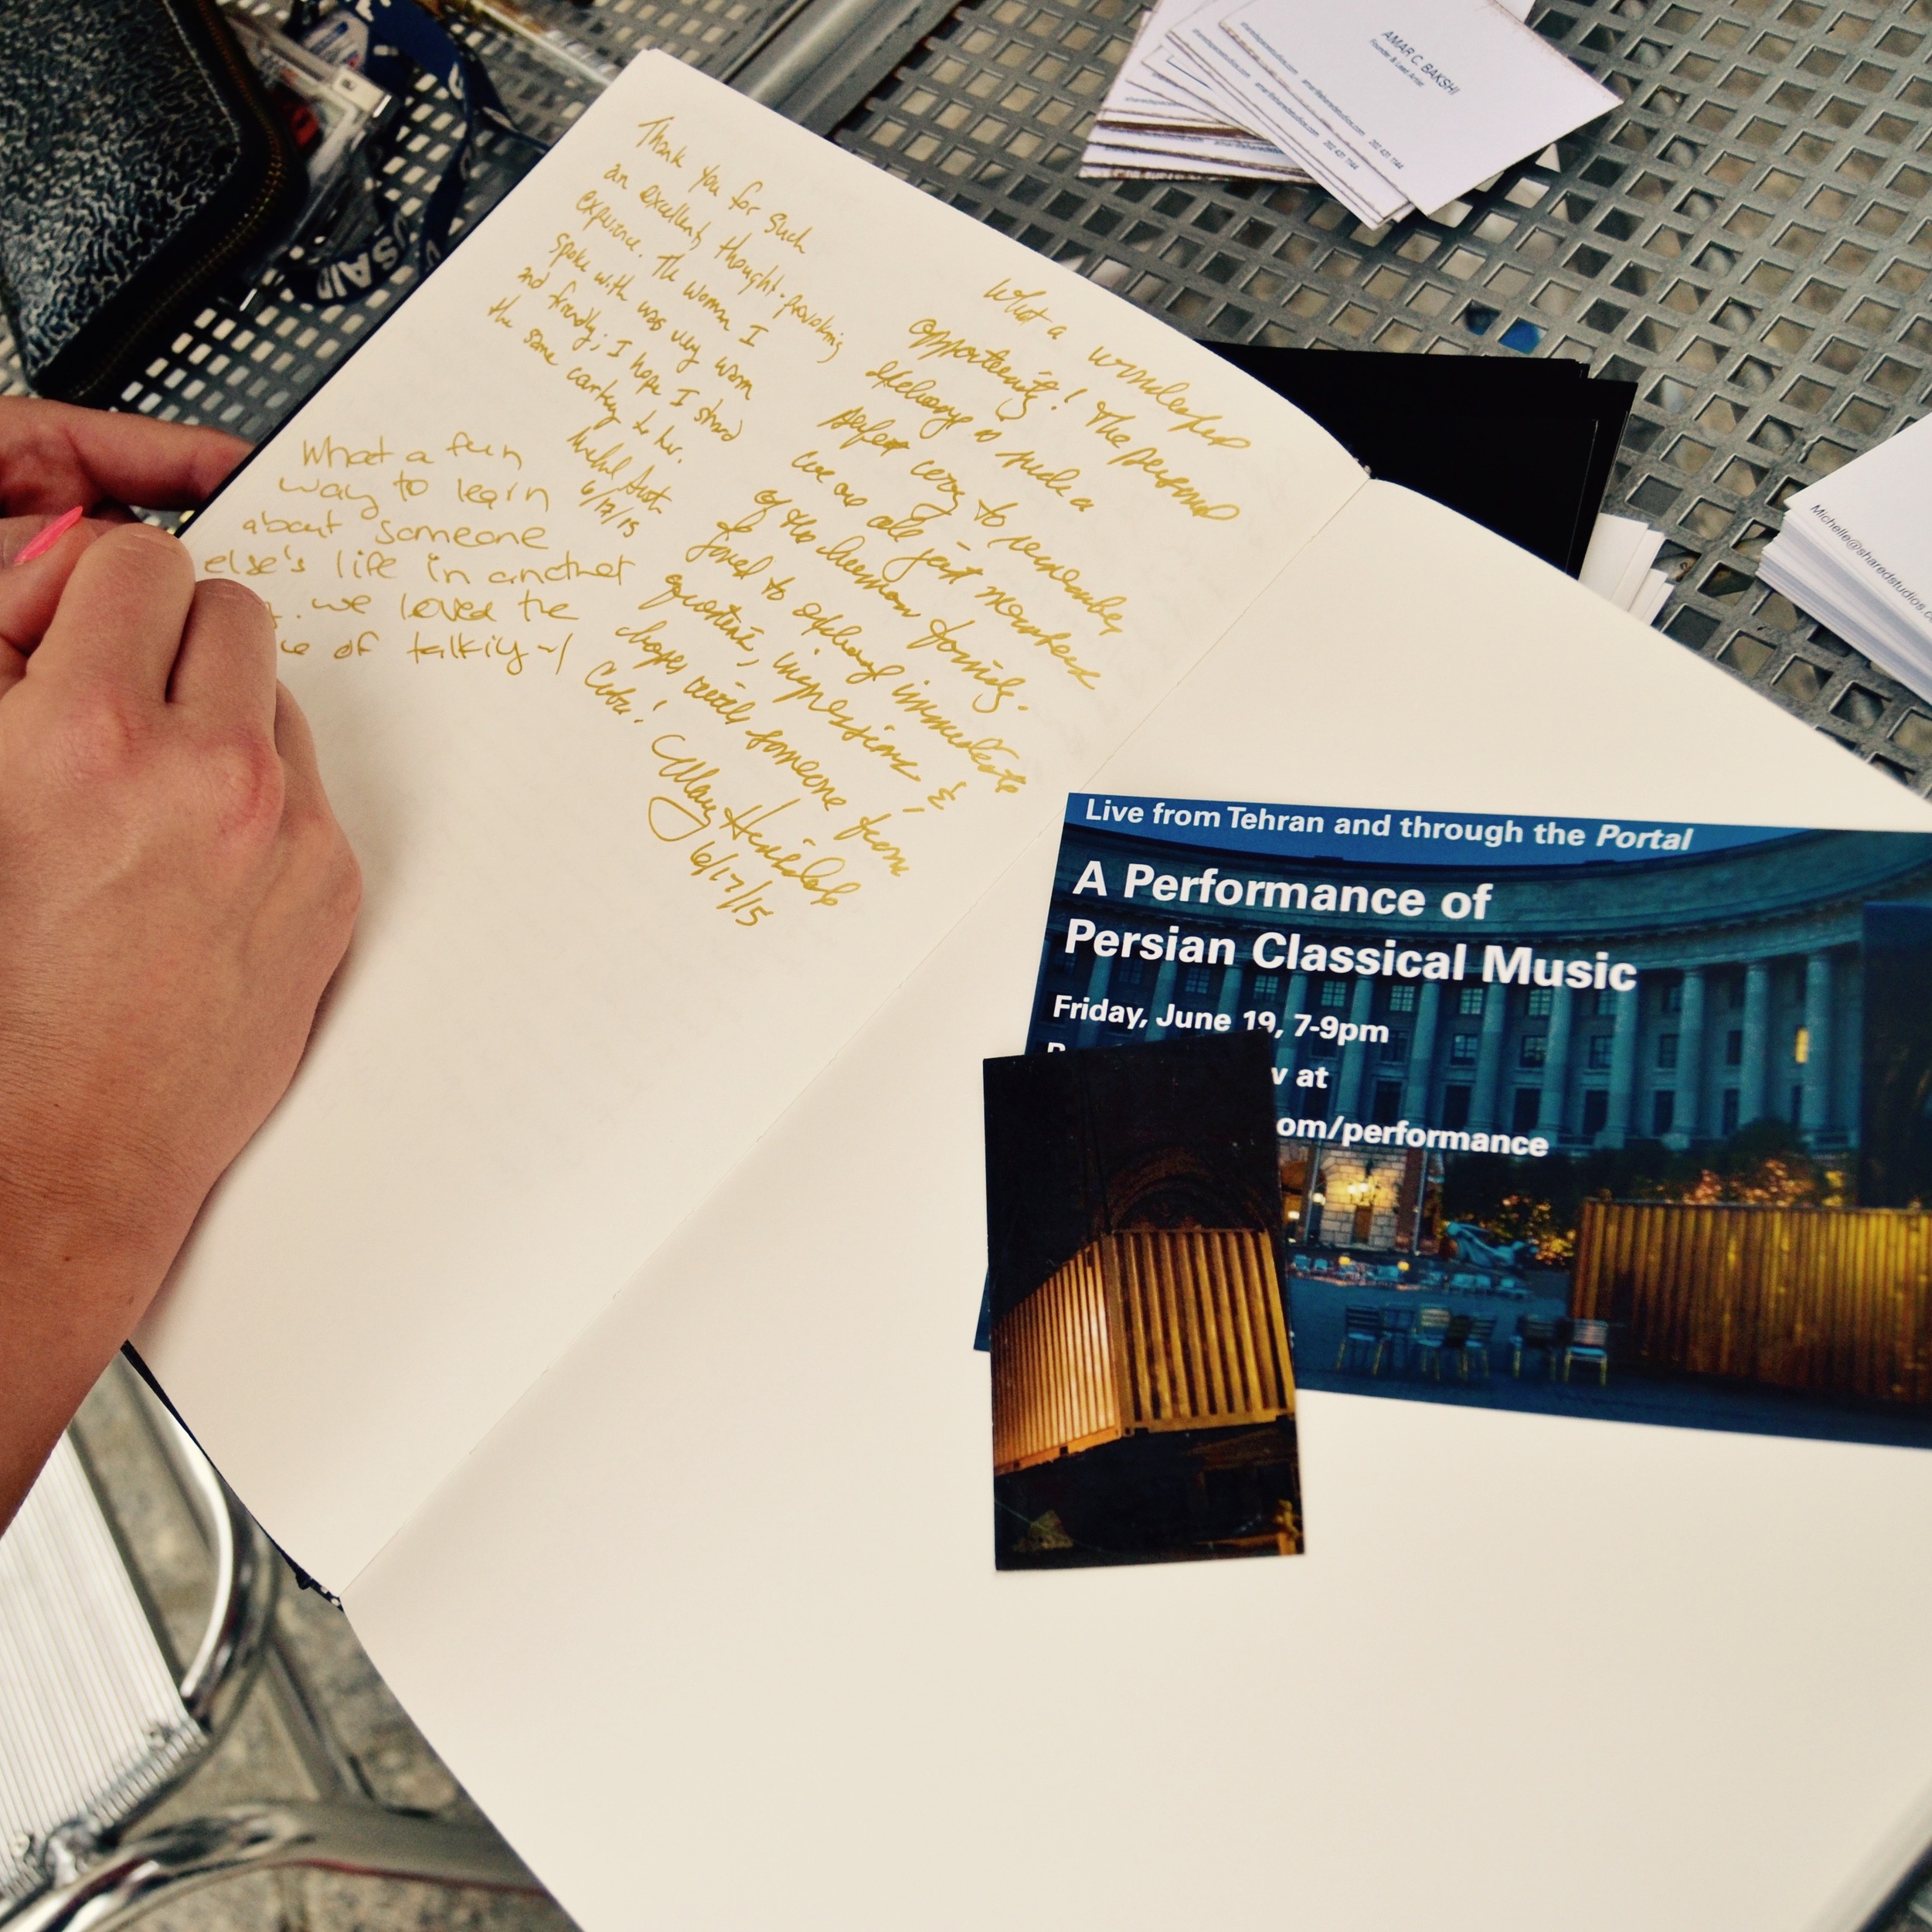 Thank you for such
an excellent, thought-provoking
experience. The woman I
spoke with was very warm
and friendly; I hope I showed
the same courtesy to her.
6/17/15
What a fun
way to learn
about someone
else's life in another
we loved the
of talking
What a wonderful
opportunity! The personal
exchange is such a
perfect way to remember
we are all just members
of the human family.
I loved to exchange immediate
questions, impressions &
hopes with someone from
Cuba!
Mary
6/17/15
Live from Tehran and through the Portal
A Performance of
Persian Classical Music
Friday, June 19, 7-9pm
at
om/performance
AMAR C. BAKSHI
Founder & Lead Artist
amar@sharedstudios.com 202 431 7144
Michelle@sharedstudios.c
USAID